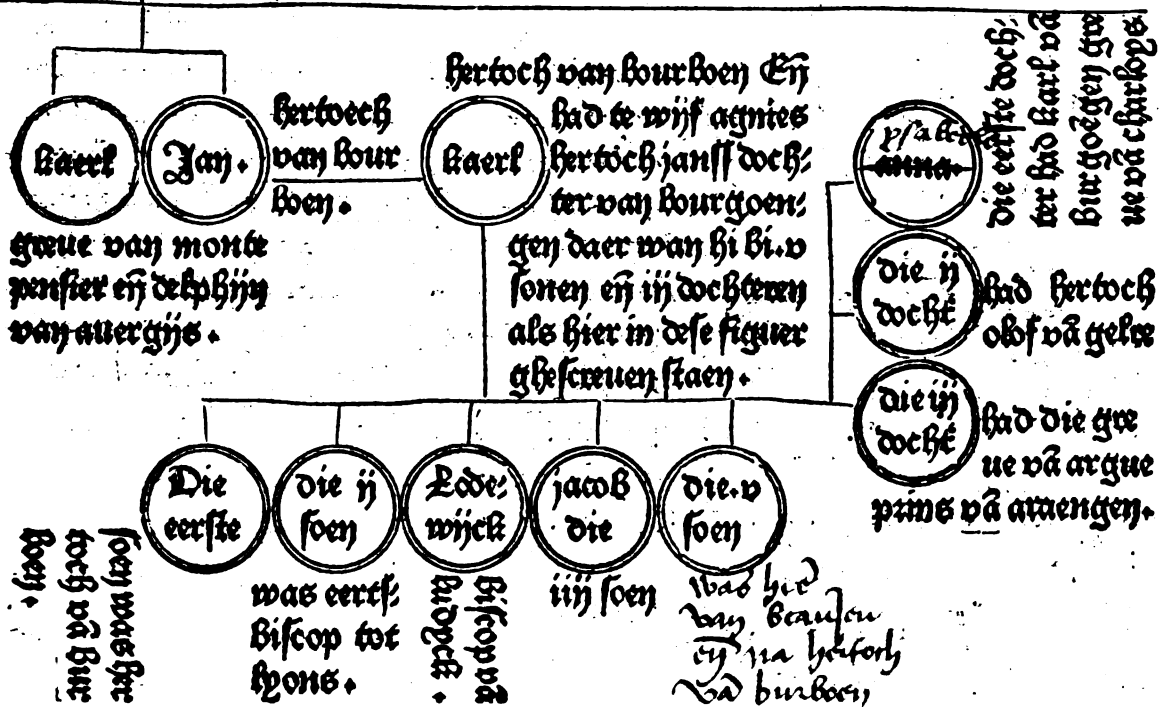 kaerl
Jan.
hertoech
van bour
boen.
greue van monte
pensier eñ delphijn
van auergijs.
kaerl
hertoch van bourboen Eñ
had te wijf agnies
hertoch janss doch⸗
ter van bourgoen⸗
gen daer wan hi bi.v
sonen eñ iij dochteren
als hier in dese figuer
ghescreuen staen.
anna.
die eerste doch⸗
ter had karl vã
burgoẽgen gre
ue vã charloys
die ij
docht̃
had hertoch
olof vã gelre
die iij
docht̃
had die gre
ue vã argue
prins vã araengen.
Die
eerste
soen was her
toch vã bur
boen.
die ij
soen
was eertf⸗
biscop tot
lyons.
Lode⸗
wijck
biscop vã
ludyck.
jacob
die
iiij soen
die.v
soen
was
van beaujeu
eñ na hertoch
vã burboen